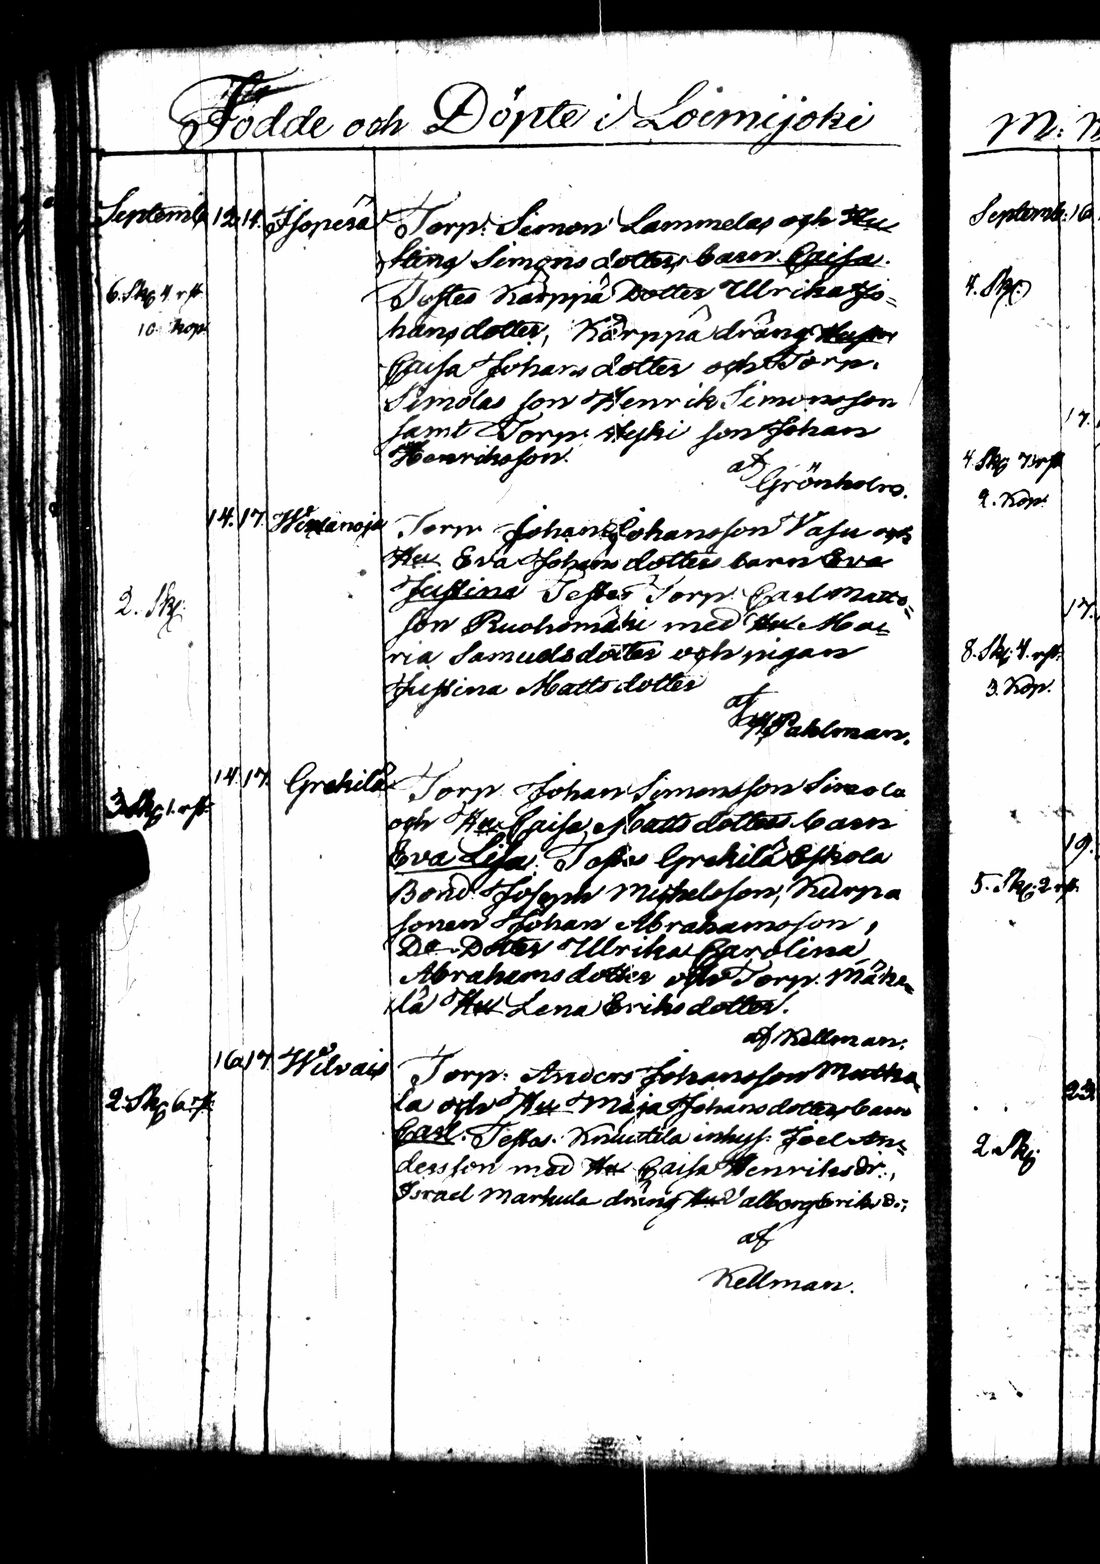 Födde och Döpte i Loimijoki
Septemb 12. 14. Isoperä Torp: Simon Lammelas och Hu
Simons dotters barn Caisa.
6. Sk. 4. rst. Testes Karppä Dotter Ulrika Jo-
10 Kop. hans dotter, Kärppä dräng Hust
Caisa Johans dotter och Torp.
Simolas son Henrik Simonsson
samt Torp. son Johan
Henriksson.
af
Grönholm.
14. 17. Torp Johan Johansson Vasu och
Hu Eva Johans dotters barn Eva
Justina Testes Torp. Carl Matts-
2. Sk. son Ruohomäki med Hu Ma-
ria Samuelsdotter och pigan
Justina Matts dotter
af
Pahlman.
14. 17. Grekilä Torp Johan Simonsson Simola
3 Sk. 1. rst. och Hu Caisa Matts dotters barn
Eva Lisa. Testes Grekilä Eskola
Bond. Joseph Michelsson, Kurpa
sonen Johan Abrahamsson,
Do Dotter Ulrika Carolina
Abrahams dotter och Torp. Mäke-
lä Hu Lena Eriks dotter.
af Kellman.
16. 17. Wilvais Torp: Anders Johansson
2. Sk. 6. rst. la och Hu Maja Johans dotters barn
Carl. Testes. Knuutila inhys. Joel An-
dersson med Hu Caisa Henriks dr.,
Israel Markula dräng Hu Valborg Eriks d.;
af
Kellman.
M:
Septemb. 16
4. Sk.
17.
4. Sk. 7 rst
2. Kop.
17.
8. Sk. 4. rst.
3. Kop.
19.
5. Sk. 2 rst.
23
2 Sk.